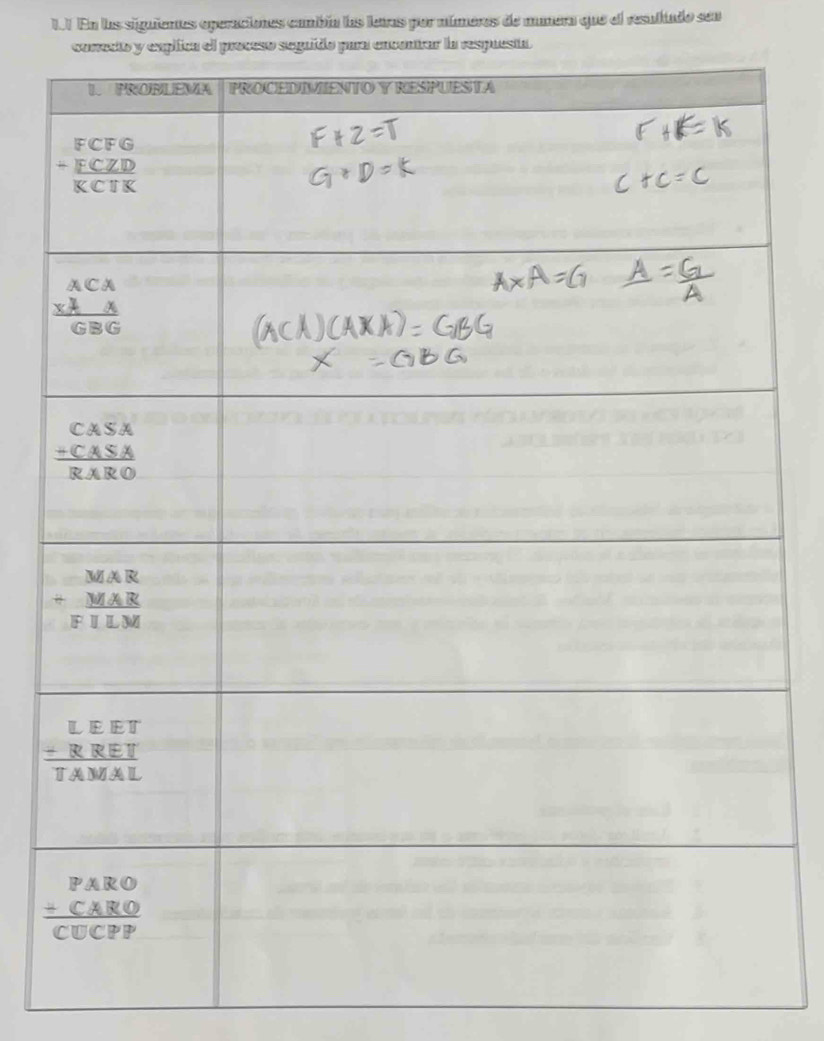 1.1 En las siguientes operaciones cambia las letras por números de manera que el resultado sea
correcto y explica el proceso seguido para encontrar la respuesta.
1. PROBLEMA PROCEDIMIENTO Y RESPUESTA
FCFG
+ FCZD
KCTK
F+Z=T
F+K=K
G+D=K
C+C=C
ACA
x A A
GBG
AxA=G A = G/A
(ACA)(AXA)=GBG
X =GBG
CASA
+CASA
RARO
MAR
+ MAR
FILM
LEET
+ RRET
TAMAL
PARO
+ CARO
CUCPP